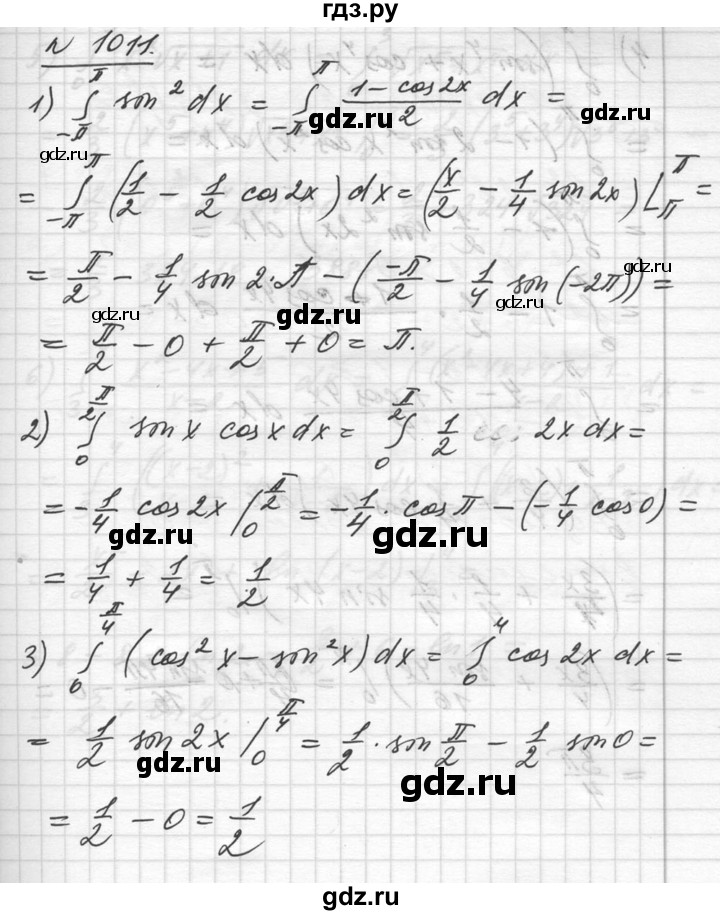 гдз.ру
N 1011.
1) ∫_{-π}^{π} sin² dx = ∫_{-π}^{π} (1 - cos2x)/2 dx =
gdz.ru gdz.ru
= ∫_{-π}^{π} (1/2 - 1/2 cos2x) dx = (x/2 - 1/4 sin 2x) |_{π}^{π} =
= π/2 - 1/4 sin 2·π - (-π/2 - 1/4 sin(-2π)) =
gdz.ru gdz.ru gdz.ru
= π/2 - 0 + π/2 + 0 = π.
2) ∫_{0}^{π/2} sin x cos x dx = ∫_{0}^{π/2} 1/2 2x dx =
= -1/4 cos 2x |_{0}^{π/2} = -1/4 · cos π - (-1/4 cos 0) =
gdz.ru gdz.ru
= 1/4 + 1/4 = 1/2
3) ∫_{0}^{π/4} (cos² x - sin² x) dx = ∫_{0}^{4} cos 2x dx =
= 1/2 sin 2x |_{0}^{π/4} = 1/2 · sin π/2 - 1/2 sin 0 =
gdz.ru gdz.ru
= 1/2 - 0 = 1/2
gdz.ru